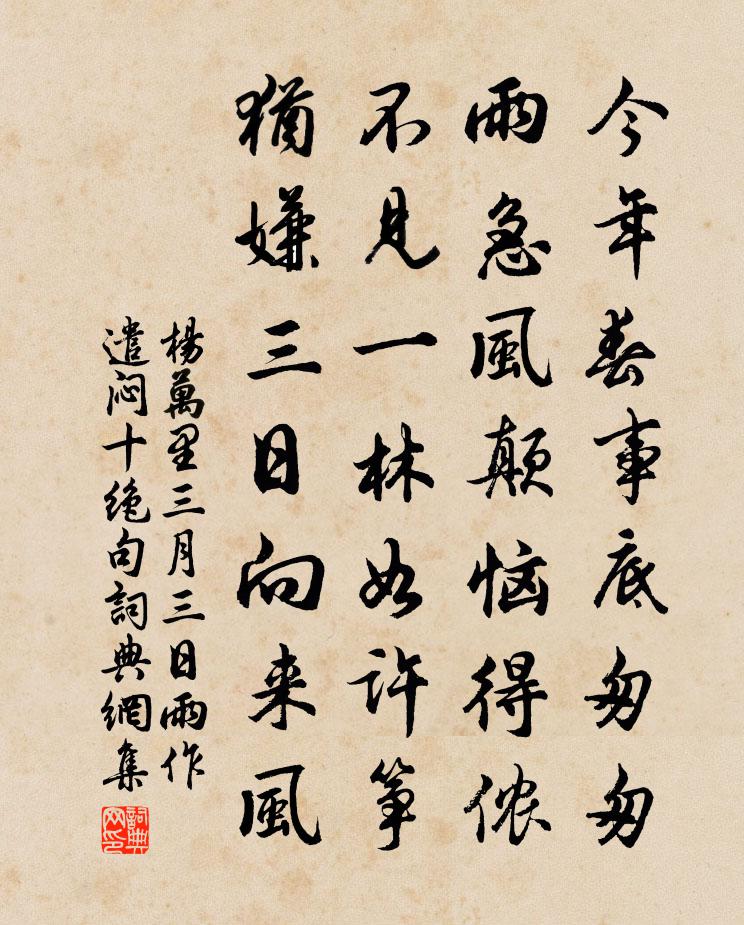 今年春事底匆匆
雨急風顛恼得侬
不見一林如許笋
猶嫌三日向来風
楊萬里三月三日雨作
遣闷十絶句詞典網集
詞典網印